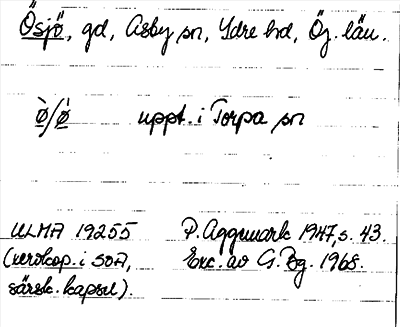 Ösjö, gd, Asby sn, Ydre hd, Ög. län.
ø̀/ǿ uppt. i Torpa sn
ULMA 19255 P. Aggemark 1947, s. 43.
(xerokop. i SOA, Exc. av G. Bg. 1968.
särsk. kapsel).